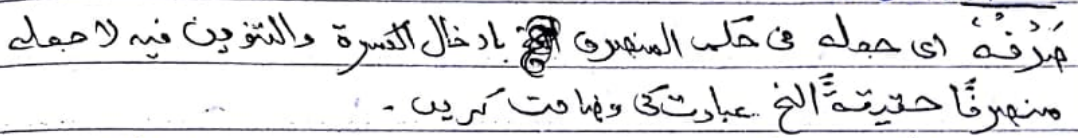 صَرْفُهٗ ای جعله فی حکم المنصرف بادخال الکسرة والتنوین فیه لا جعله
منصرفًا حقیقةً الخ عبارت کی وضاحت کریں ۔